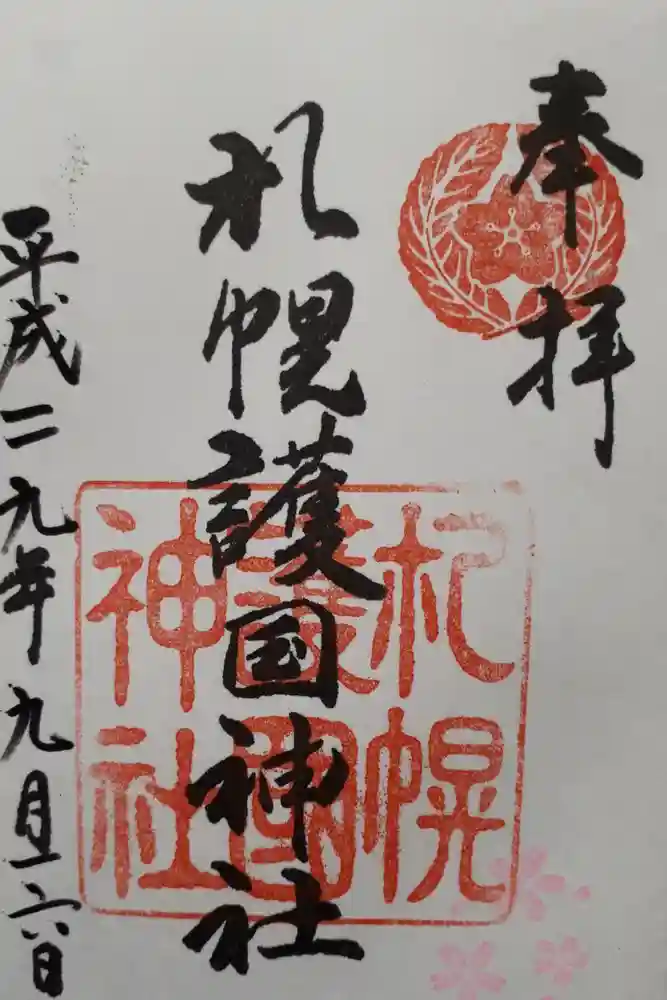 奉拝
札幌護国神社
平成二九年九月六日
札幌
護國
神社